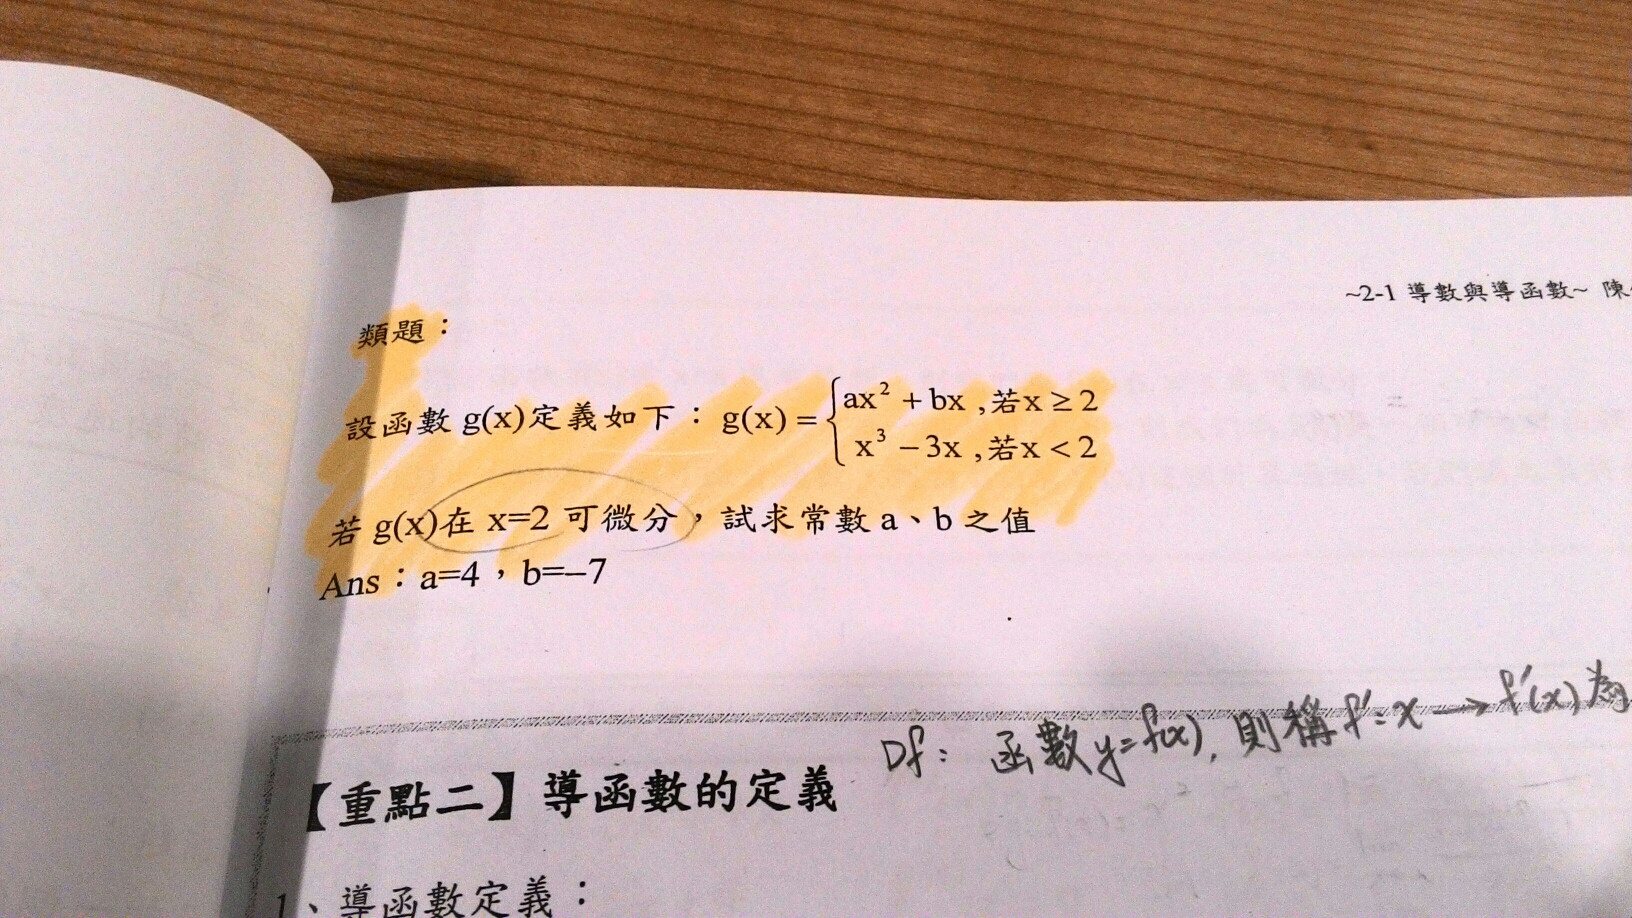 ~2-1 導數與導函數~ 陳
類題：
設函數 g(x)定義如下：g(x) = { ax² + bx ,若x ≥ 2
x³ − 3x ,若x < 2
若 g(x)在 x=2 可微分，試求常數 a、b 之值
Ans：a=4，b=−7
Df: 函數y=f(x), 則稱f':x→f'(x)為
【重點二】導函數的定義
1、導函數定義：